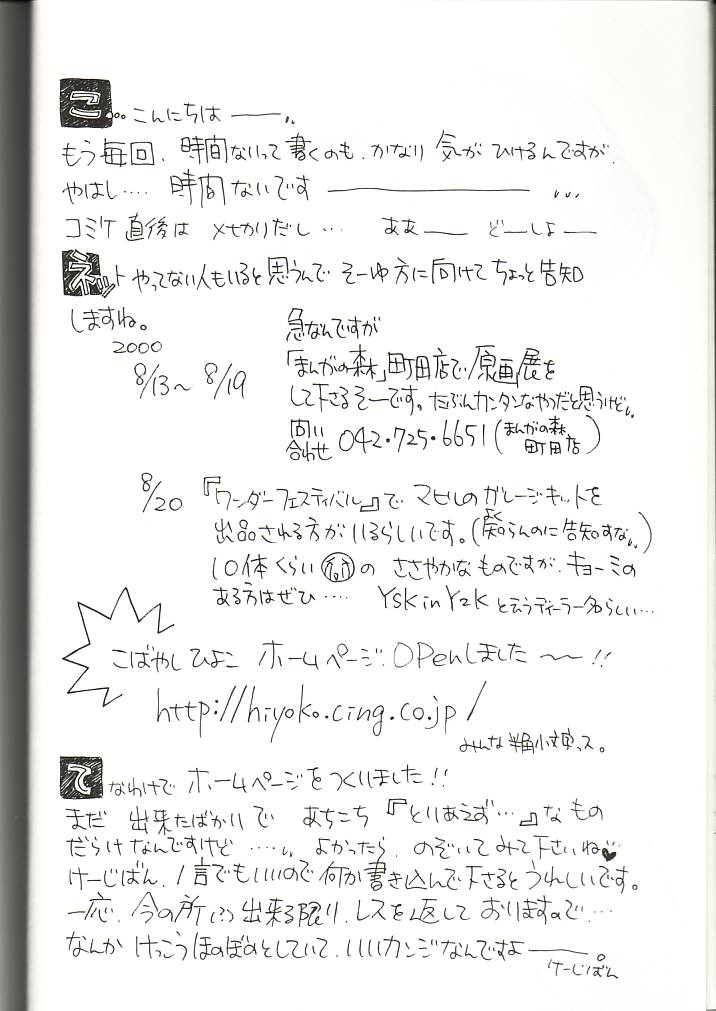 こ… こんにちは ――..
もう毎回、時間ないって書くのも、かなり 気が ひけるんですが、
やはし…. 時間 ないです ―――――― ...
コミケ 直後は メせカりだし… ああ―― どーしよ―
ネット やってない人もいると思うんで そーゆ方に向けてちょっと告知
しますね。
2000
8/13〜 8/19
急なんですが
「まんがの森」町田店で「原画」展を
して下さるそーです。たぶんカンタンなやつだと思うけど..
問い合わせ 042・725・6651(まんがの森 町田店)
8/20 『ワンダーフェスティバル』で マヒルの ガレージキットを
出品される方がいるらしいです。(よく知らんのに告知すな..)
10体くらいの ささやかなものですが、キョーミの
ある方はぜひ…. YSK in Y2K と云うディーラー名らしい…
こばやし ひよこ ホームページ OPenしました 〜〜 !!
http://hiyoko.cing.co.jp/
みんな半角小文字っス。
てなわけで ホームページをつくりました!!
まだ 出来たばかりで あちこち『とりあえず…』な もの
だらけなんですけど ….. よかったら、のぞいてみて下さいね♥
けーじばん、1言でもいいので何か書き込んで下さると うれしいです。
一応、今の所は 出来る限り、レスを返して おりますので、…
なんか けっこうほのぼのとしていて、いいカンジなんですよ――。
けーじばん